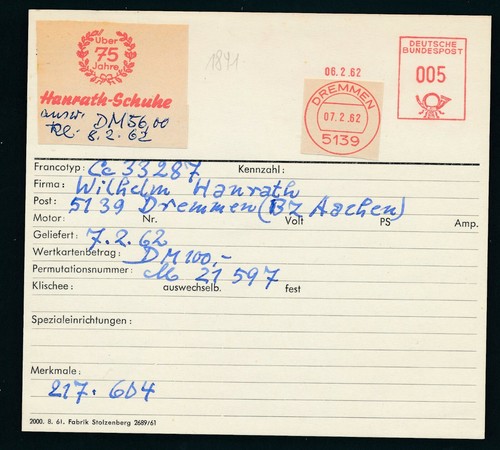 Über
75
Jahre
Hanrath-Schuhe
DM 56,00
8.2.62
1841
06.2.62
DEUTSCHE
BUNDESPOST
005
DREMMEN
07.2.62
5139
Francotyp: Cc 33287 Kennzahl:
Firma: Wilhelm Hanrath
Post: 5139 Dremmen (BZ Aachen)
Motor: Nr. Volt PS Amp.
Geliefert: 7.2.62
Wertkartenbetrag: DM 100,-
Permutationsnummer: M 21 597
Klischee: auswechselb. fest
Spezialeinrichtungen:
Merkmale:
217. 604
2000. 8. 61. Fabrik Stolzenberg 2689/61